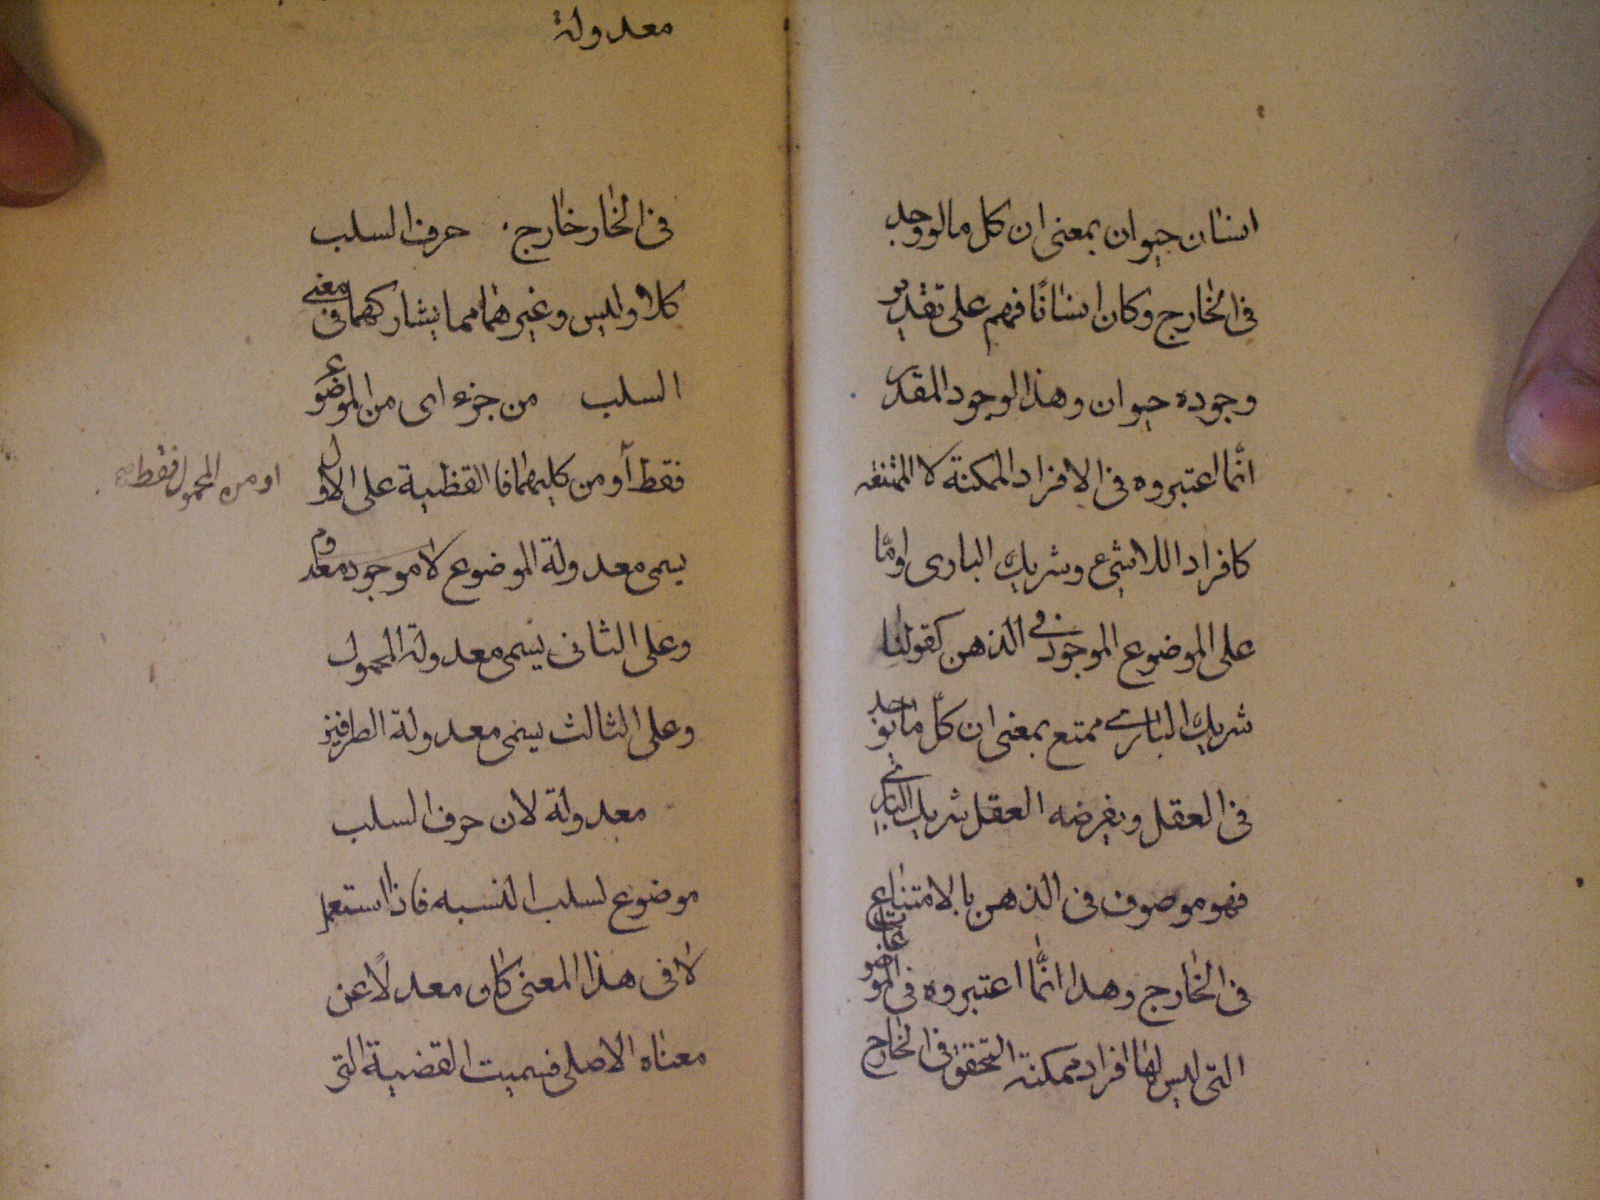 انسان حيوان بمعنى ان كل ما لو وجد
فى الخارج وكان انسانًا فهم على تقدير
وجوده حيوان وهذا لوجود المقدر
انّما اعتبروه فى الافراد الممكنة لا الممتنعه
كافراد اللاشئ وشريك البارى اومّا
على الموضوع الموجود فى الذهن كقولنا
شريك البارى ممتنع بمعنى ان كلّ ما يوجد
فى العقل ويفرضه العقل شريك البارى
فهو موصوف فى الذهن بالامتناع
فى الخارج وهذا انّما اعتبروه فى الموضوعات
التى ليس لها افراد ممكنة التحقق فى الخارج
معدولة
فى الخار خارج حرف السلب
كلا وليس وغيرهما مما يشاركهما فى معنى
السلب من جزء اى من الموضوع
فقط أو من كليهما فا القظية على الاول
او من المحمول فقط
يسمى معدولة الموضوع كلا موجود معدوم
وعلى الثانى يسمى معدولة المحمول
وعلى الثالث يسمى معدولة الطرفين
معدولة لان حرف السلب
موضوع لسلب النسبه فاذا استعمل
لا فى هذا المعنى كان معدلًا عن
معناه الاصلى فسميت القضية التى